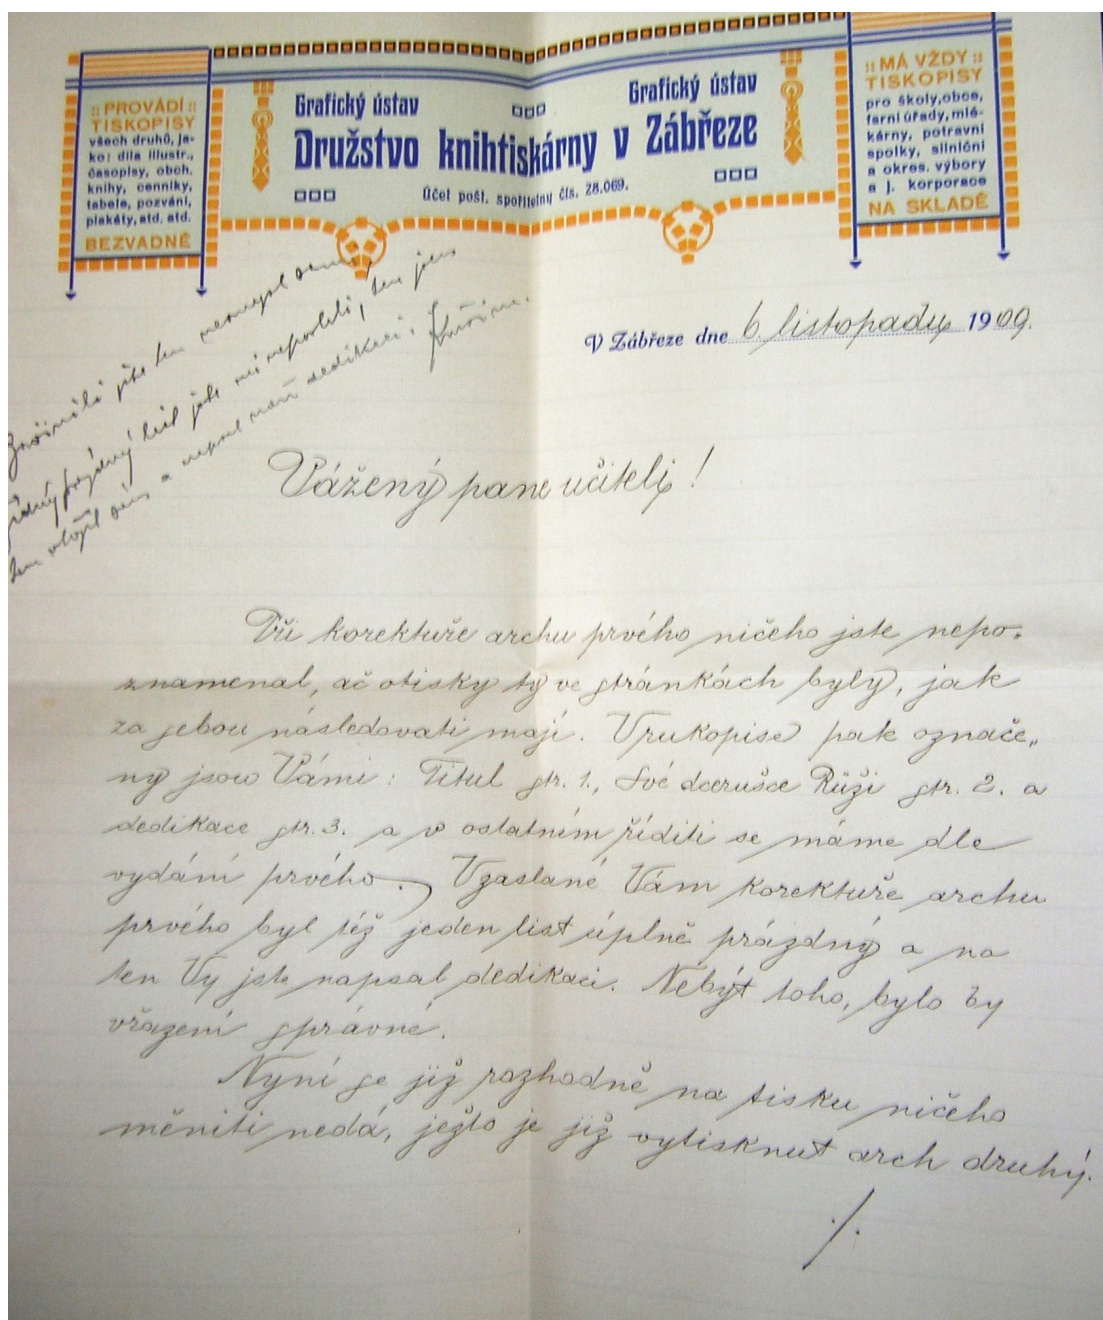 :: PROVÁDÍ ::
TISKOPISY
všech druhů, ja-
ko: díla illustr.,
časopisy, obch.
knihy, cenníky,
tabele, pozvání,
plakáty, atd. atd.
BEZVADNĚ
Grafický ústav
Grafický ústav
Družstvo knihtiskárny v Zábřeze
Účet pošt. spořitelny čís. 28.069.
:: MÁ VŽDY ::
TISKOPISY
pro školy, obce,
farní úřady, mlé-
kárny, potravní
spolky, silniční
a okres. výbory
a j. korporace
NA SKLADĚ
V Zábřeze dne 6. listopadu 1909.
jste ten nesmysl
prázdný list jste mi neposlali, ten jsem
ten vložil a napsal naň dedikaci.
Vážený pane učiteli!
Při korektuře archu prvého ničeho jste nepo-
znamenal, ač otisky ty ve stránkách byly, jak
za sebou následovati mají. V rukopise pak označe-
ny jsou Vámi: Titul str. 1., Své dcerušce Růži str. 2. a
dedikace str. 3. a v ostatním říditi se máme dle
vydání prvého. V zaslané Vám korektuře archu
prvého byl též jeden list úplně prázdný a na
ten Vy jste napsal dedikaci. Nebýt toho, bylo by
vřazení správné.
Nyní se již rozhodně na tisku ničeho
měniti nedá, ježto je již vytisknut arch druhý.
./.